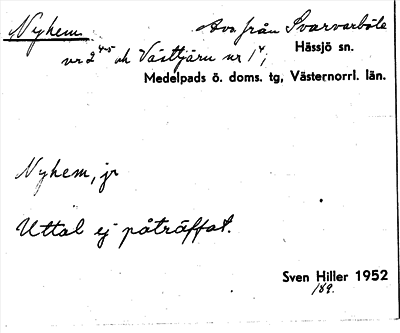 Nyhem Avs från Svarvarböle
nr 2⁴⁻⁵ och Västtjärn nr 1⁴, Hässjö sn.
Medelpads ö. doms. tg, Västernorrl. län.
Nyhem, jr
Uttal ej påträffat.
Sven Hiller 1952
189.